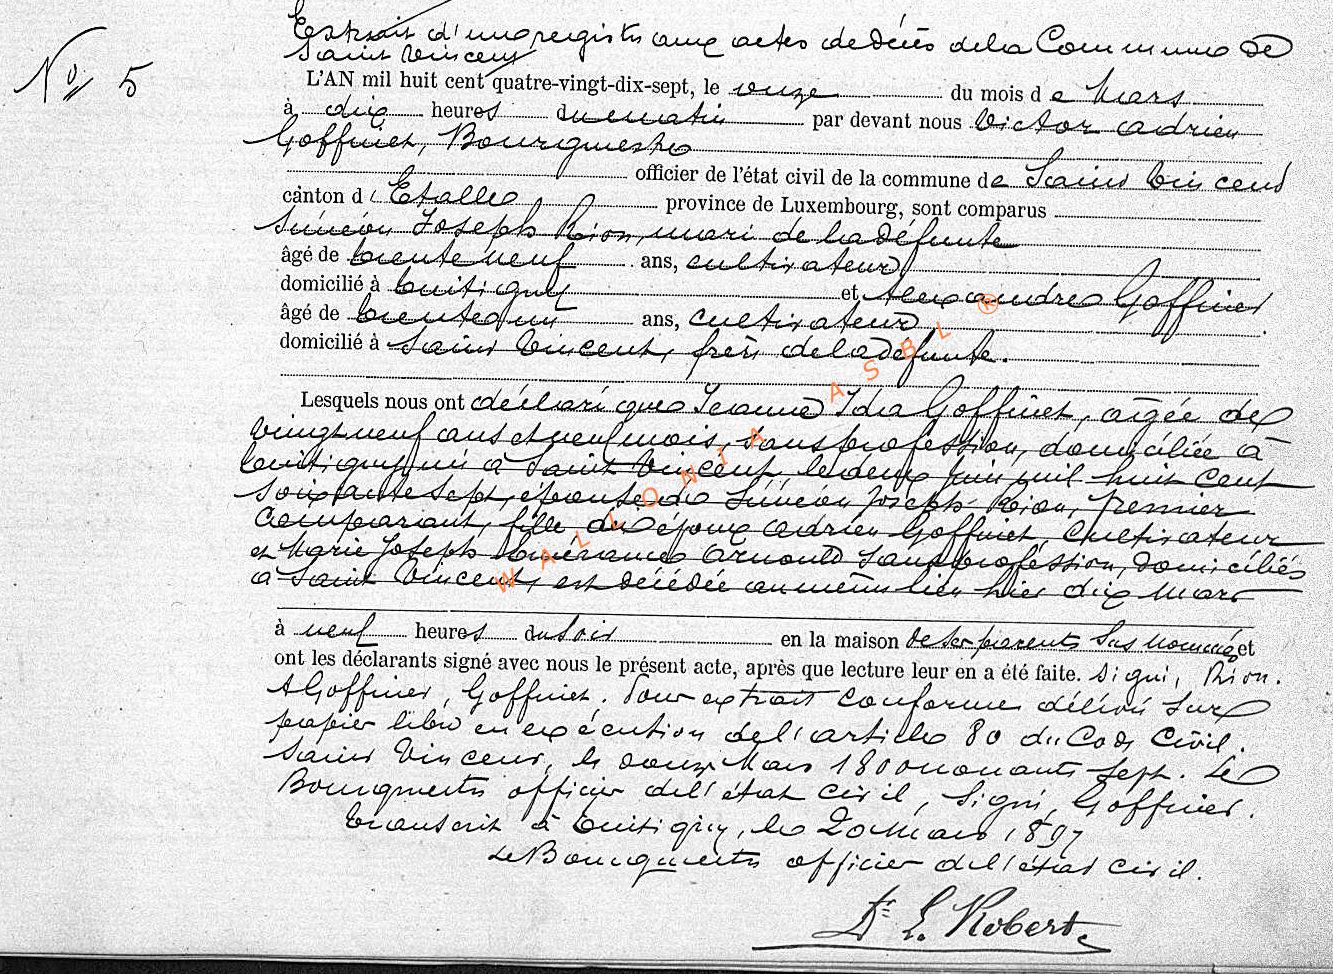 Extrait d'un registre aux actes de Décès de la Commune de
Saint Vincent
No 5
L'AN mil huit cent quatre-vingt-dix-sept, le onze du mois de Mars
à dix heures du matin par devant nous Victor Adrien
Goffinet, Bourgmestre
officier de l'état civil de la commune de Saint Vincent
canton d'Etalle province de Luxembourg, sont comparus
Siméon Joseph Rion, mari de la Défunte
âgé de trente neuf ans, cultivateur
domicilié à Tintigny et Alexandre Goffinet
âgé de trente un ans, cultivateur
domicilié à Saint Vincent, frère de la défunte.
Lesquels nous ont déclaré que Jeanne Ida Goffinet, âgée de
vingt neuf ans et neuf mois, sans profession, domiciliée à
Tintigny née à Saint Vincent, le deux juin mil huit cent
soixante sept, épouse de Siméon Joseph Rion, premier
comparant, fille des époux Adrien Goffinet, cultivateur
et Marie Joseph Arnould sans profession, domiciliés
à Saint Vincent, est décédée au même lieu hier dix Mars
à neuf heures du soir en la maison de ses parents sus nommés et
ont les déclarants signé avec nous le présent acte, après que lecture leur en a été faite. Signé, Rion.
A Goffinet, Goffinet. Pour extrait conforme délivré sur
papier libre en exécution de l'article 80 du Code Civil.
Saint Vincent, le douze Mars 1800 nonante sept. Le
Bourgmestre officier de l'état civil, Signé, Goffinet.
Transcrit à Tintigny, le 20 Mars 1897
Le Bourgmestre officier de l'état civil.
Dr L. Robert
WALLONIA ASBL ®